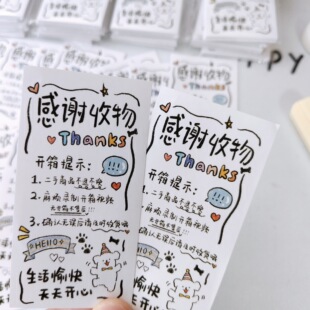 感谢收物
Thanks
开箱提示：
!!!
1.二手商品不退不换
2.麻烦录制开箱视频
3.确认无误后请及时收货哦
HELLO
生活愉快
天天开心
感谢收物
Thanks
开箱提示：
!!!
1.二手商品不退不换
2.麻烦录制开箱视频
3.确认无误后请及时收货哦
HELLO
生活愉快
天天开心